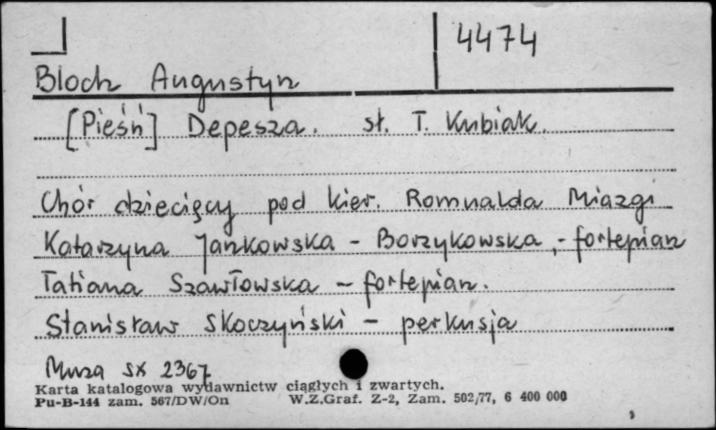 4474
Bloch Augustyn
[Pieśń] Depesza. sł. T. Kubiak.
Chór dziecięcy pod kier. Romualda Miazgi
Katarzyna Jankowska - Borzykowska, - fortepian
Tatiana Szawłowska - fortepian.
Stanisław Skoczyński - perkusja
Muza SX 2367
Karta katalogowa wydawnictw ciągłych i zwartych.
Pu-B-144 zam. 567/DW/On W.Z.Graf. Z-2, Zam. 502/77, 6 400 000